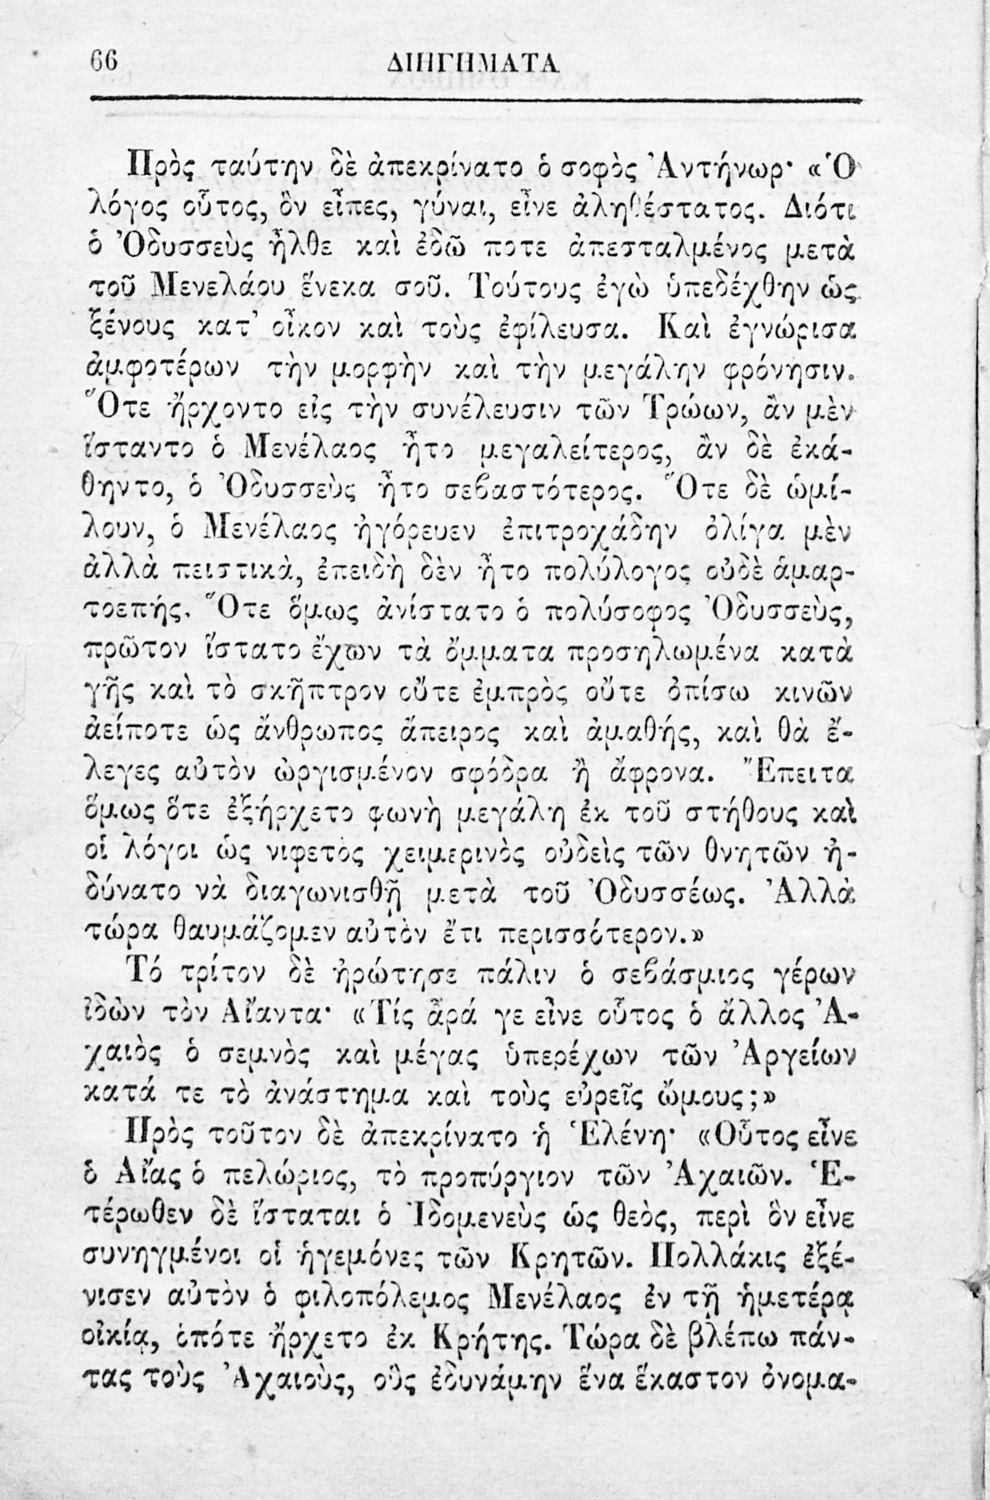 66 ΔΙΗΓΗΜΑΤΑ
Πρὸς ταύτην δὲ ἀπεκρίνατο ὁ σοφὸς Ἀντήνωρ· «Ὁ
λόγος οὗτος, ὃν εἶπες, γύναι, εἶνε ἀληθέστατος. Διότι
ὁ Ὀδυσσεὺς ἦλθε καὶ ἐδῶ ποτε ἀπεσταλμένος μετὰ
τοῦ Μενελάου ἕνεκα σοῦ. Τούτους ἐγὼ ὑπεδέχθην ὡς
ξένους κατ’ οἶκον καὶ τοὺς ἐφίλευσα. Καὶ ἐγνώρισα
ἀμφοτέρων τὴν μορφὴν καὶ τὴν μεγάλην φρόνησιν.
Ὅτε ἤρχοντο εἰς τὴν συνέλευσιν τῶν Τρώων, ἂν μὲν
ἵσταντο ὁ Μενέλαος ἦτο μεγαλείτερος, ἂν δὲ ἐκά-
θηντο, ὁ Ὀδυσσεὺς ἦτο σεβαστότερος. Ὅτε δὲ ὡμί-
λουν, ὁ Μενέλαος ἠγόρευεν ἐπιτροχάδην ὀλίγα μὲν
ἀλλὰ πειστικὰ, ἐπειδὴ δὲν ἦτο πολύλογος οὐδὲ ἁμαρ-
τοεπής. Ὅτε ὅμως ἀνίστατο ὁ πολύσοφος Ὀδυσσεὺς,
πρῶτον ἵστατο ἔχων τὰ ὄμματα προσηλωμένα κατὰ
γῆς καὶ τὸ σκῆπτρον οὔτε ἐμπρὸς οὔτε ὀπίσω κινῶν
ἀείποτε ὡς ἄνθρωπος ἄπειρος καὶ ἀμαθής, καὶ θὰ ἔ-
λεγες αὐτὸν ὠργισμένον σφόδρα ἢ ἄφρονα. Ἔπειτα
ὅμως ὅτε ἐξήρχετο φωνὴ μεγάλη ἐκ τοῦ στήθους καὶ
οἱ λόγοι ὡς νιφετὸς χειμερινὸς οὐδεὶς τῶν θνητῶν ἠ-
δύνατο νὰ διαγωνισθῇ μετὰ τοῦ Ὀδυσσέως. Ἀλλὰ
τώρα θαυμάζομεν αὐτὸν ἔτι περισσότερον.»
Τό τρίτον δὲ ἠρώτησε πάλιν ὁ σεβάσμιος γέρων
ἰδὼν τὸν Αἴαντα· «Τίς ἆρά γε εἶνε οὗτος ὁ ἄλλος Ἀ-
χαιὸς ὁ σεμνὸς καὶ μέγας ὑπερέχων τῶν Ἀργείων
κατά τε τὸ ἀνάστημα καὶ τοὺς εὐρεῖς ὤμους;»
Πρὸς τοῦτον δὲ ἀπεκρίνατο ἡ Ἑλένη· «Οὗτος εἶνε
ὁ Αἴας ὁ πελώριος, τὸ προπύργιον τῶν Ἀχαιῶν. Ἑ-
τέρωθεν δὲ ἵσταται ὁ Ἰδομενεὺς ὡς θεὸς, περὶ ὃν εἶνε
συνηγμένοι οἱ ἡγεμόνες τῶν Κρητῶν. Πολλάκις ἐξέ-
νισεν αὐτὸν ὁ φιλοπόλεμος Μενέλαος ἐν τῇ ἡμετέρᾳ
οἰκίᾳ, ὁπότε ἤρχετο ἐκ Κρήτης. Τώρα δὲ βλέπω πάν-
τας τοὺς Ἀχαιοὺς, οὓς ἐδυνάμην ἕνα ἕκαστον ὀνομα-